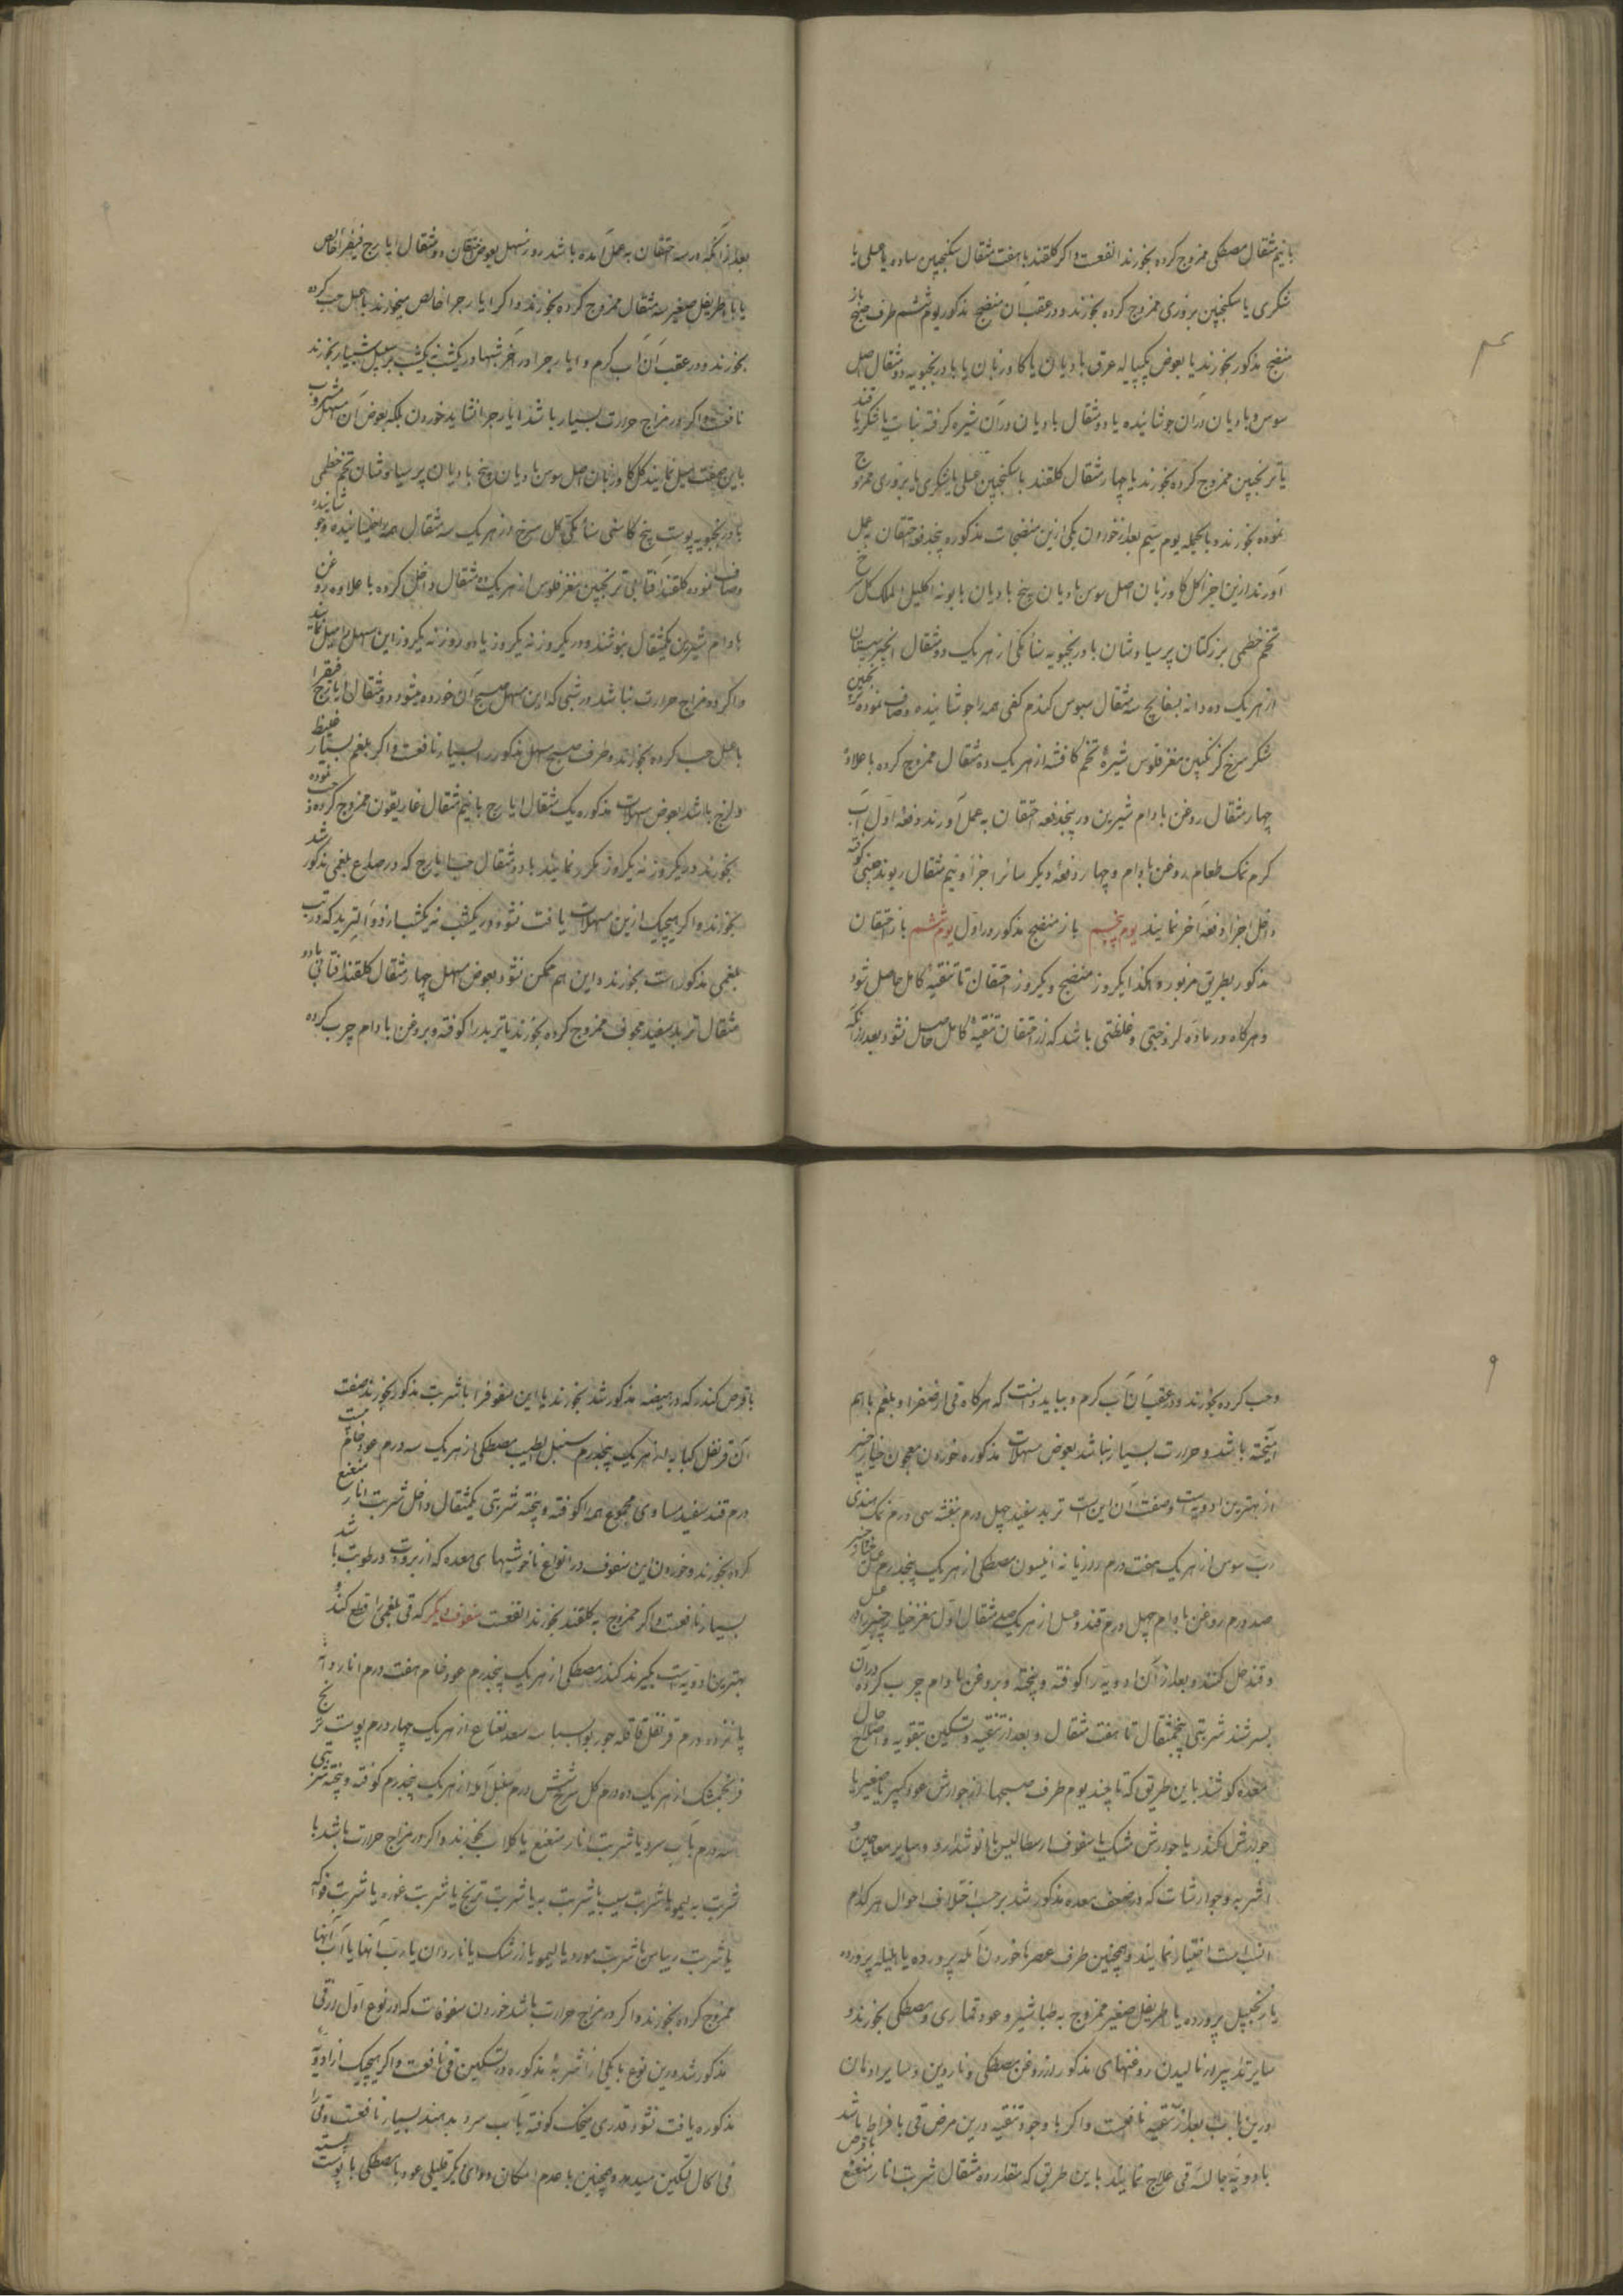 بانیم مثقال مصطکی ممزوج کرده بخورند انفعست و اگر کلقند با هفت مثقال سکنجبین ساده یا عسلی یا
شکری یا سکنجبین بزوری ممزوج کرده بخورند و در عقب آن منضج مذکور یوم ششم طرف صبح باز
منضج مذکور بخورند یا بعوض یکپیاله عرق بادیان یا کاوزبان یا بادرنجبویه دو مثقال اصل
سوس و بادیان دران جوشانیده یا دو مثقال بادیان دران شیره کرفته نبات یا شکر یا قند
یا ترنجبین ممزوج کرده بخورند یا چهار مثقال کلقند با سکنجبین عسلی یا شکری یا بزوری ممزوج
نموده بخورند و بالجمله یوم سیم بعد از خوردن یکی ازین منضجات مذکوره پنجدفعه احتقان به عمل
آورند ازین اجزا کل کاوزبان اصل سوس بادیان بیخ بادیان بابونه اکلیل الملک کل سرخ
تخم خطمی بزرکتان پرسیاوشان بادرنجبویه سنامکی از هر یک دو مثقال انجیر سپستان
از هر یک ده دانه بسفایج سه مثقال سبوس کندم کفی همه را جوشانیده و صاف نموده ترنجبین
شکر سرخ کزنکبین مغز فلوس شیرهٔ تخم کافشه از هر یک ده مثقال ممزوج کرده با علاوهٔ
چهار مثقال روغن بادام شیرین در پنجدفعه احتقان به عمل آورند دفعهٔ اول آب
کرم نمک طعام روغن بادام و چهار دفعهٔ دیکر سائر اجزا و نیم مثقال ریوند چینی کوفته
داخل اجزا دفعه آخر نمایند یوم پنجم باز منضج مذکور در اول یوم ششم باز احتقان
مذکور بطریق مزبور و هکذا یکروز منضج و یکروز احتقان تا تنقیه کامل حاصل شود
و هرکاه در ماده لزوجتی و غلظتی باشد که از احتقان تنقیهٔ کامل حاصل نشود بعد از آنکه
بعد از آنکه در سه احتقان به عمل آمده باشد روز مسهل بعوض احتقان دو مثقال ایارج فیقرا خالص
یا با اطریفل صغیر سه مثقال ممزوج کرده بخورند و اکر ایارجرا خالص میخورند با عسل حب کرده
بخورند و در عقب آن آب کرم و ایارجرا در آخر شبها در یکشب نه یکشب بر سبیل شبیار بخورند
نافعست و اکر در مزاج حرارت بسیار باشد ایارجرا نشاید خوردن بلکه بعوض آن مسهل مشروب
باین صفت عمل نمایند کل کاوزبان اصل سوس بادیان بیخ بادیان پرسیاوشان تخم خطمی
بادرنجبویه پوست بیخ کاسنی سنامکی کل سرخ از هر یک سه مثقال همه را خیسانیده و جوشانیده
و صاف نموده کلقند آفتابی ترنجبین مغز فلوس از هر یک ده مثقال داخل کرده با علاوه روغن
بادام شیرین یکمثقال بنوشند و در یکروز نه یکروز یا دو روز نه یکروز این مسهل را عمل نمایند
و اکر در مزاج حرارت نباشد در شبی که این مسهل صبح آن خورده میشود دو مثقال ایارج فیقرا
با عسل حب کرده بخورند و طرف صبح مسهل مذکور را بسیار نافعست و اکر بلغم بسیار غلیظ
و لزج باشد بعوض مسهلات مذکوره یک مثقال ایارج با نیم مثقال غاریقون ممزوج کرده حب نموده
بخورند در یکروز نه یکروز مکرر نمایند یا دو مثقال حب ایارج که در صداع بلغمی مذکور شد
بخورند و اکر هیچیک ازین مسهلات یافت نشود در یکشب نه یکشب از دواءالتربد که در تب
بلغمی مذکور است بخورند و این هم ممکن نشود بعوض مسهل چهار مثقال کلقند آفتابی با دو
مثقال تربد سفید مجوف ممزوج کرده بخورند یا تربد را کوفته و بروغن بادام چرب کرده
و حب کرده بخورند و در عقب آن آب کرم و بباید دانست که هرکاه قی از صفرا و بلغم با هم
آمیخته باشد و حرارت بسیار نباشد بعوض مسهلات مذکوره خوردن معجون خیارچنبر
از بهترین ادویه است و صفت آن این است تربد سفید چهل درم بنفشه سی درم نمک هندی
رب سوس از هر یک هفت درم رازیانه انیسون مصطکی از هر یک پنجدرم عسل خیارچنبر
صد درم روغن بادام چهل درم قند و عسل از هر یک مثقال اول مغز خیارچنبر را در عسل
و قند حل کنند و بعد از آن ادویه را کوفته و پخته و بروغن بادام چرب کرده در آن
بسرشند شربتی پنجمثقال تا هفت مثقال و بعد از تنقیه و تسکین بتقویه و اصلاح حال
معده کوشند باین طریق که تا چند یوم طرف صبحها از جوارش عود کبیر یا صغیر یا
جوارش کندر یا جوارش مشک یا سفوف ارسطالیس یا نوشدارو و سایر معاجین و
اشربه و جوارشات که در ضعف معده مذکور شد بر حسب اختلاف احوال هر کدام
انسب است اختیار نمایند و همچنین طرف عصر با خوردن آمله پرورده یا هلیله پرورده
یا زنجبیل پرورده یا اطریفل صغیر ممزوج به طباشیر و عود قماری و مصطکی بخورند و
سایر تدابیر از مالیدن روغنهای مذکور از روغن مصطکی و ناردین و سایر ادهان
درین باب بعد از تنقیه نافعست و اکر با وجود تنقیه درین مرض قی با فراط باشد
با ادویه حابسهٔ قی علاج نمایند باین طریق که مقدار ده مثقال شربت انار منعنع با قرص
با قرص کندر که در هیضه مذکور شد بخورند یا این سفوفرا با شربت مذکور بخورند صفت
آن قرنفل کبابه از هر یک پنجدرم سنبل الطیب مصطکی از هر یک سه درم عود خام بیست
درم قند سفید مساوی مجموع همه را کوفته و پخته شربتی یکمثقال داخل شربت انار منعنع
کرده بخورند و خوردن این سفوف در انواع ناخوشیهای معده که از برودت و رطوبت باشد
بسیار نافعست و اکر ممزوج به کلقند بخورند انفعست سفوف دیکر که قی بلغمی را قطع کند و
بهترین ادویه است بکیرند کندر مصطکی از هر یک پنجدرم عود خام هفت درم انار دانه
پانزده درم قرنفل قاقله جوزبوا بسباسه سعد نعناع از هر یک چهار درم پوست ترنج
فرنجمشک از هر یک ده درم کل سرخ شش درم سنبل آمله از هر یک پنجدرم کوفته و پخته شربتی
سه درم با آب سرد یا شربت انار منعنع یا کلاب بخورند و اکر در مزاج حرارت باشد با
شربت به لیمو یا شربت سیب یا شربت به یا شربت ترنج یا شربت غوره یا شربت فواکه
یا شربت ریباس یا شربت مورد یا لیمو یا زرشک یا ناردان یا رب آنها یا آب آنها
ممزوج کرده بخورند و اکر در مزاج حرارت باشد خوردن سفوفات که در نوع اول از قی
مذکور شد درین نوع با یکی از اشربهٔ مذکوره در تسکین قی نافعست و اکر هیچیک از ادویه
مذکوره یافت نشود قدری میخک کوفته با آب سرد بدهند بسیار نافعست و قی را
فی الحال تسکین میدهد و همچنین با عدم امکان دوای دیکر قلیلی عود یا مصطکی با پوست پسته